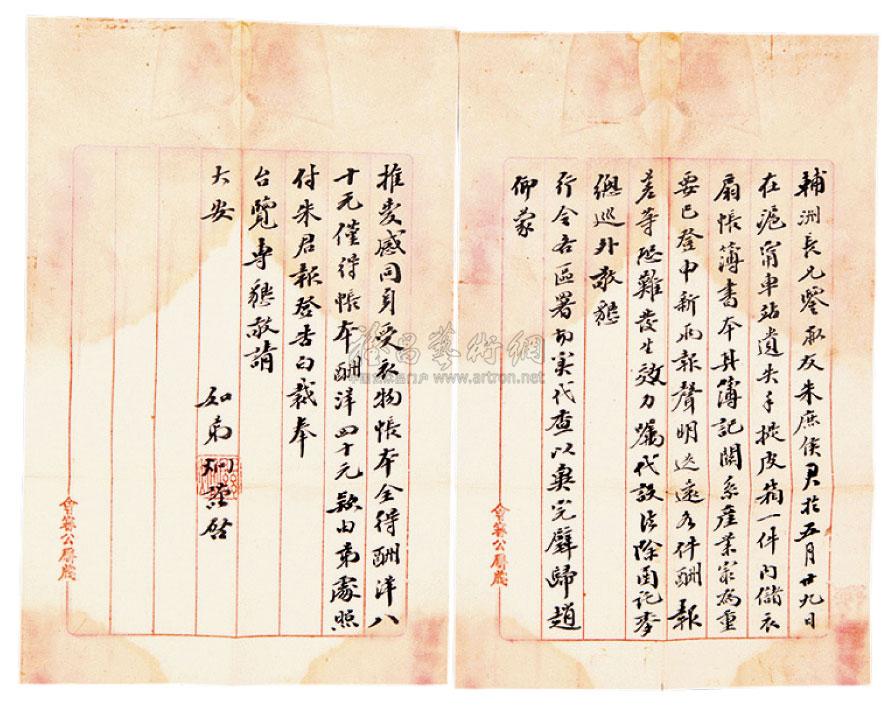 輔洲長兄鑒敝友朱庶侯君於五月廿九日
在滬甯車站遺失手提皮箱一件內儲衣
扇帳簿書本其簿記關系產業家為重
要已登申新兩報聲明送還各件酬報
差等恐難發生效力囑代設法除函託李
總巡外敬懇
行令各區署切實代查以冀完璧歸趙
仰蒙
推愛感同身受衣物帳本全得酬洋八
十元僅得帳本酬洋四十元款由弟處照
付朱君報登告白裁奉
台覽專懇敬請
大安
如弟炯謹啓
會審公廨箋
會審公廨箋
雅昌藝術網
中国艺术品门户 www.artron.net